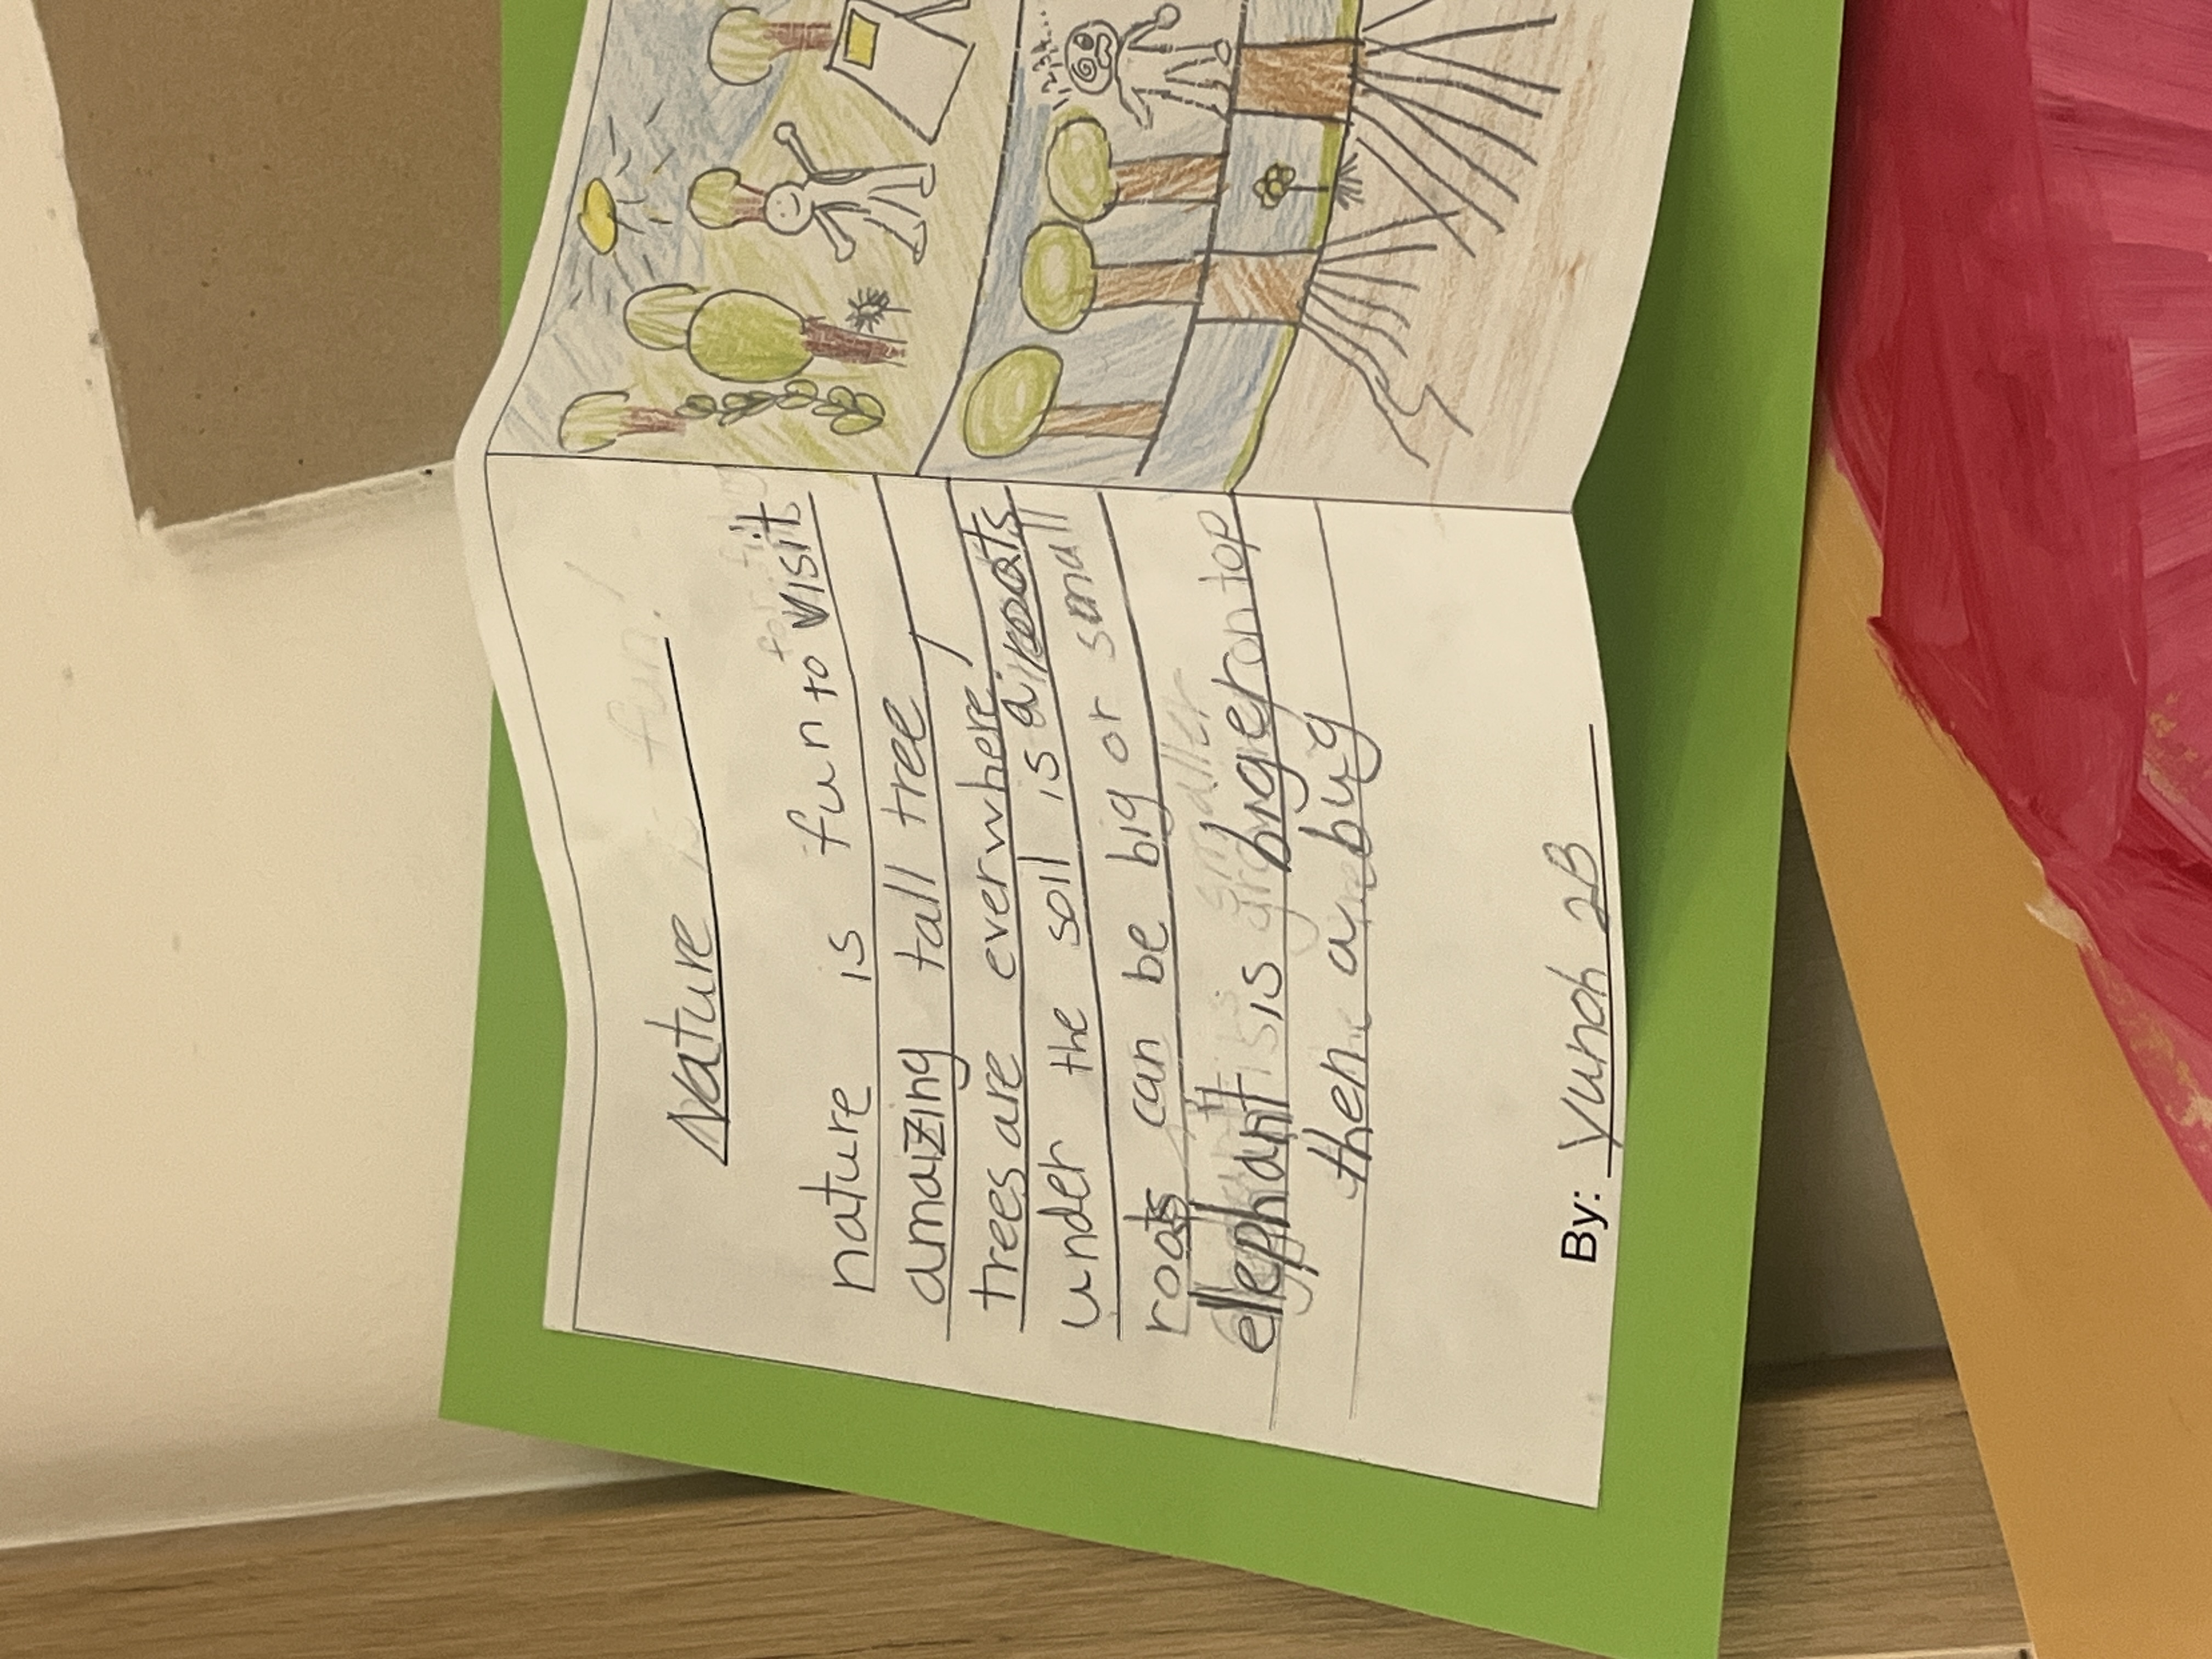 Nature
nature is fun to visit
amaizing tall tree
trees are everwhere
under the soil is a roots
roots can be big or small
ellephant is biger on top
then a bug
By: Yunah 2B